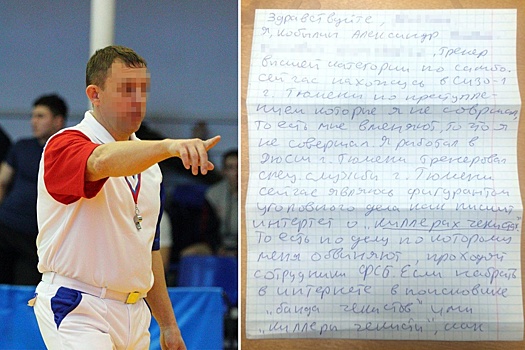 Здравствуйте,
Я, Кобилич Александр
, тренер
высшей категории по самбо.
сейчас нахожусь в СИЗО-1
г. Тюмени по преступле-
нием которые я не совершал
То есть мне вменяют, то что я
не совершал. Я работал в
г. Тюмени тренеровал
спец. службы г. Тюмени
сейчас являюсь фигурантом
уголовного дела как пишит
интертет о "киллерах чекистах"
То есть по делу по которому
меня обвиняют, проходят
сотрудники ФСБ. Если набрать
в интернете в поисковике
"банда чекистов" или
"киллеры чекисты", как